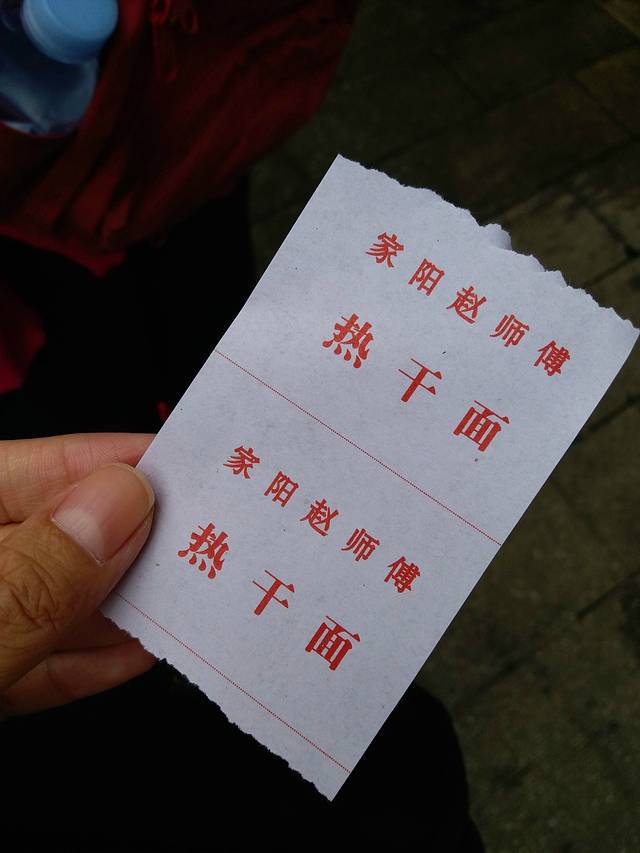 家阳赵师傅
热干面
家阳赵师傅
热干面